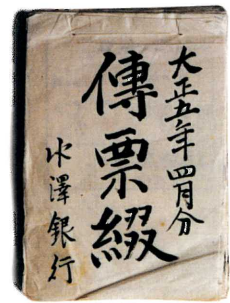 大正五年四月分
傳票綴
水澤銀行